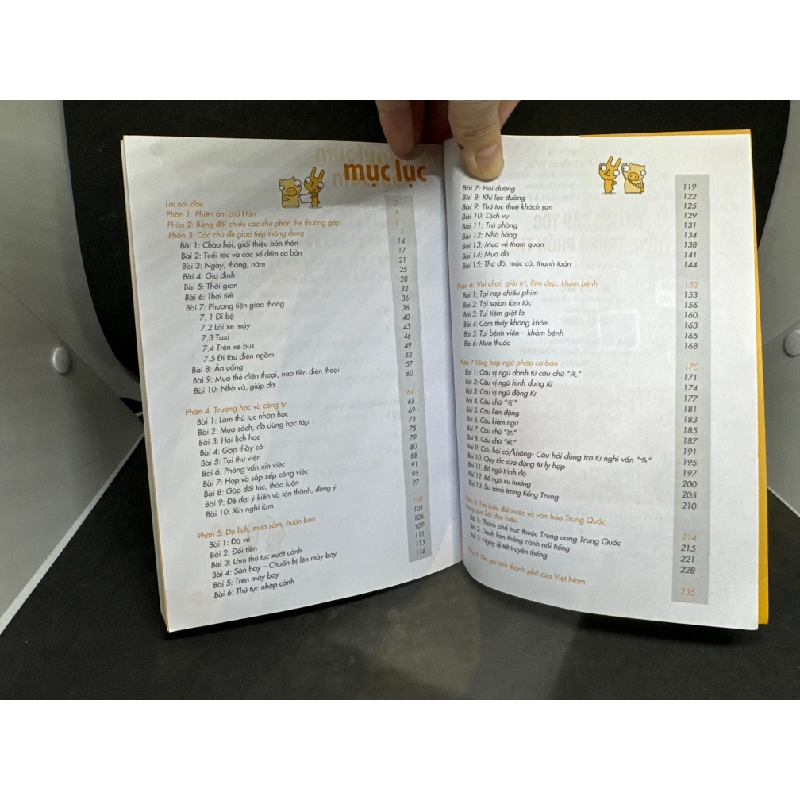 mục lục
Lời nói đầu 3
Phần 1: Phiên âm chữ Hán 4
Phần 2: Bảng đối chiếu các chữ phồn thể thường gặp
Phần 3: Các chủ đề giao tiếp thông dụng
Bài 1: Chào hỏi, giới thiệu bản thân 14
Bài 2: Tuổi tác và các số đếm cơ bản 17
Bài 3: Ngày, tháng, năm 21
Bài 4: Gia đình 25
Bài 5: Thời gian 28
Bài 6: Thời tiết 32
Bài 7: Phương tiện giao thông 35
7.1 Đi bộ 36
7.2 Lái xe máy 40
7.3 Taxi 43
7.4 Trên xe bus 46
7.5 Đi tàu điện ngầm 49
Bài 8: Ăn uống 52
Bài 9: Mua thẻ điện thoại, nạp tiền điện thoại 57
Bài 10: Nhà và, giúp đỡ 60
Phần 4: Trường học và công ty 64
Bài 1: Làm thủ tục nhập học 65
Bài 2: Mua sách, đồ dùng học tập 69
Bài 3: Hỏi lịch học 73
Bài 4: Gặp thầy cô 75
Bài 5: Tại thư viện 79
Bài 6: Phỏng vấn xin việc 80
Bài 7: Họp và sắp xếp công việc 88
Bài 8: Gặp đối tác, thảo luận 91
Bài 9: Đề đạt ý kiến và tán thành, đồng ý 95
Bài 10: Xin nghỉ làm 97
Phần 5: Du lịch, mua sắm, buôn bán 103
Bài 1: Đổ vé 104
Bài 2: Đổi tiền 106
Bài 3: Làm thủ tục xuất cảnh 109
Bài 4: Sân bay – Chuẩn bị lên máy bay 111
Bài 5: Trên máy bay 113
Bài 6: Thủ tục nhập cảnh 114
Bài 7: Hỏi đường 119
Bài 8: Khi lạc đường 122
Bài 9: Thủ tục thuê khách sạn 125
Bài 10: Dịch vụ 129
Bài 11: Trả phòng 131
Bài 12: Nhà hàng 134
Bài 13: Mua vé tham quan 138
Bài 14: Mua đồ 141
Bài 15: Thử đồ, mặc cả, thanh toán 144
Phần 6: Vui chơi, giải trí, làm đẹp, khám bệnh 152
Bài 1: Tại rạp chiếu phim 153
Bài 2: Tại salon làm tóc 156
Bài 3: Tại tiệm giặt là 160
Bài 4: Cảm thấy không khỏe 163
Bài 5: Tại bệnh viện – khám bệnh 165
Bài 6: Mua thuốc 168
Phần 7: Tổng hợp ngữ pháp cơ bản 170
Bài 1: Câu vị ngữ danh từ câu chữ "是" 171
Bài 2: Câu vị ngữ hình dung từ 174
Bài 3: Câu vị ngữ động từ 177
Bài 4: Câu chữ "有" 181
Bài 5: Câu liên động 183
Bài 6: Câu kiêm ngữ 185
Bài 7: Câu chữ "把" 187
Bài 8: Câu chữ "被" 191
Bài 9: Câu hỏi có/không- Câu hỏi dùng trợ từ nghi vấn "吗" 195
Bài 10: Quy tắc của động từ ly hợp 197
Bài 11: Bổ ngữ trình độ 200
Bài 12: Bổ ngữ xu hướng 205
Bài 13: So sánh trong tiếng Trung 210
Phần 8: Tìm hiểu đất nước và văn hóa Trung Quốc
Bài 1: Thành phố trực thuộc Trung ương Trung Quốc 215
Bài 2: Danh lam thắng cảnh nổi tiếng 221
Bài 3: Ngày lễ tết truyền thống 228
tỉnh thành phố của Việt Nam 235